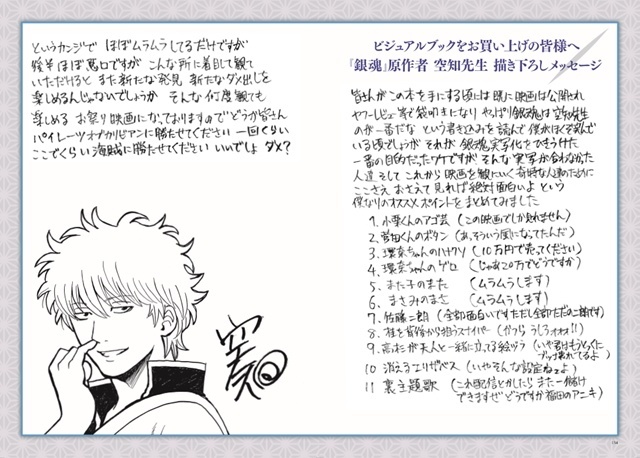 ビジュアルブックをお買い上げの皆様へ
『銀魂』原作者 空知先生 描き下ろしメッセージ
皆さんがこの本を手にする頃には既に映画は公開され
ヤフーレビュー等で袋叩きになり やっぱり銀魂は空知先生
のが一番だな という書き込みを読んで 僕がほくそ笑んで
いる頃でしょうが それが 銀魂実写化をひきうけた
一番の目的だったワケですが そんな実写が合わなかった
人達 そして これから映画を観にいく奇特な人達のために
ここさえ おさえて見れば絶対面白いよ という
僕なりのオススメポイントをまとめてみました
1. 小栗くんのアゴ芸 (この映画でしか見れません)
2. 菅田くんのボタン (あっそういう風になってたんだ)
3. 環奈ちゃんのハナクソ (10万円で売ってください)
4. 環奈ちゃんのゲロ (じゃあ20万でどうですか)
5. また子のまた (ムラムラします)
6. まさみのまさ (ムラムラします)
7. 佐藤二朗 (全部面白いですただし全部ただの二朗です)
8. 桂を背後から狙うスナイパー (ヅラっ うしろォォォ!!)
9. 高杉が天人と一緒に立てる絵ヅラ (いや君はもうとっくに
ブッ壊れてるよ)
10 消えるエリザベス (いやそんな設定ねェよ)
11 裏主題歌 (これ配信とかしたら また一儲け
できますぜ どうですか福田のアニキ)
というカンジで ほぼムラムラしてるだけですが
後半ほぼ悪口ですが こんな所に着目して観て
いただけると また新たな発見 新たなダメ出しを
楽しめるんじゃないでしょうか そんな何度観ても
楽しめる お祭り映画になっておりますので どうか皆さん
パイレーツオブカリビアンに勝たせてください 一回ぐらい
ここでくらい海賊に勝たせてください いいでしょ ダメ?
空知
134